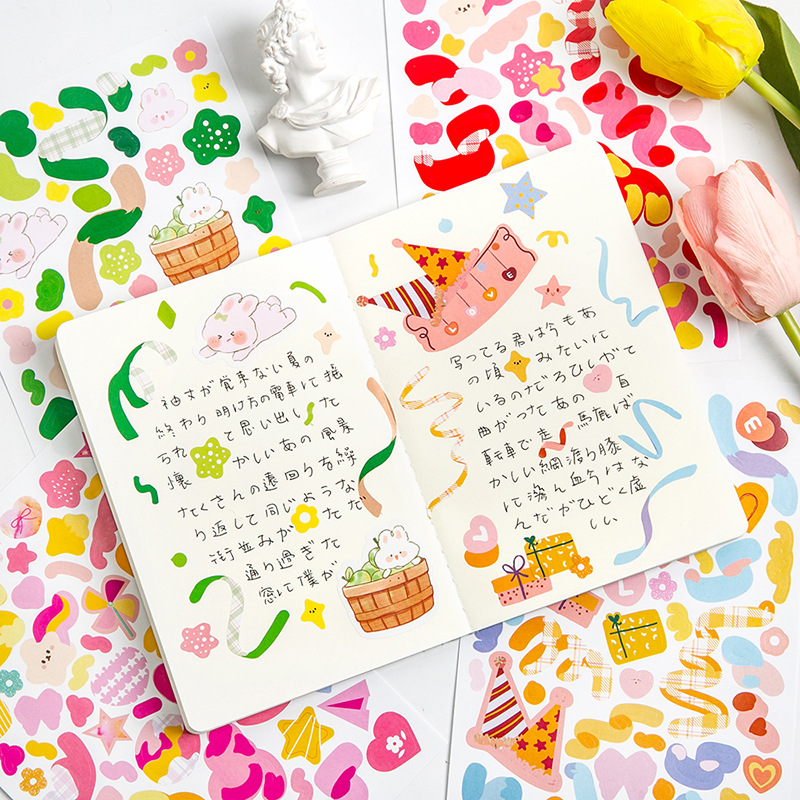 袖丈が覚束ない夏の
終わり 明け方の電車に揺
られて思い出した
懐かしいあの風景
たくさんの遠回りを繰
り返して同じような
街並みがただ
通り過ぎた
窓して僕が
写ってる君は今もあ
の頃みたいに
いるのだろひしがて
曲がったあの 自
転車で走 馬鹿ば
かしい綱渡り膝
に滲ん血今はな
んだがひどく虚
しい
L
E
L
E